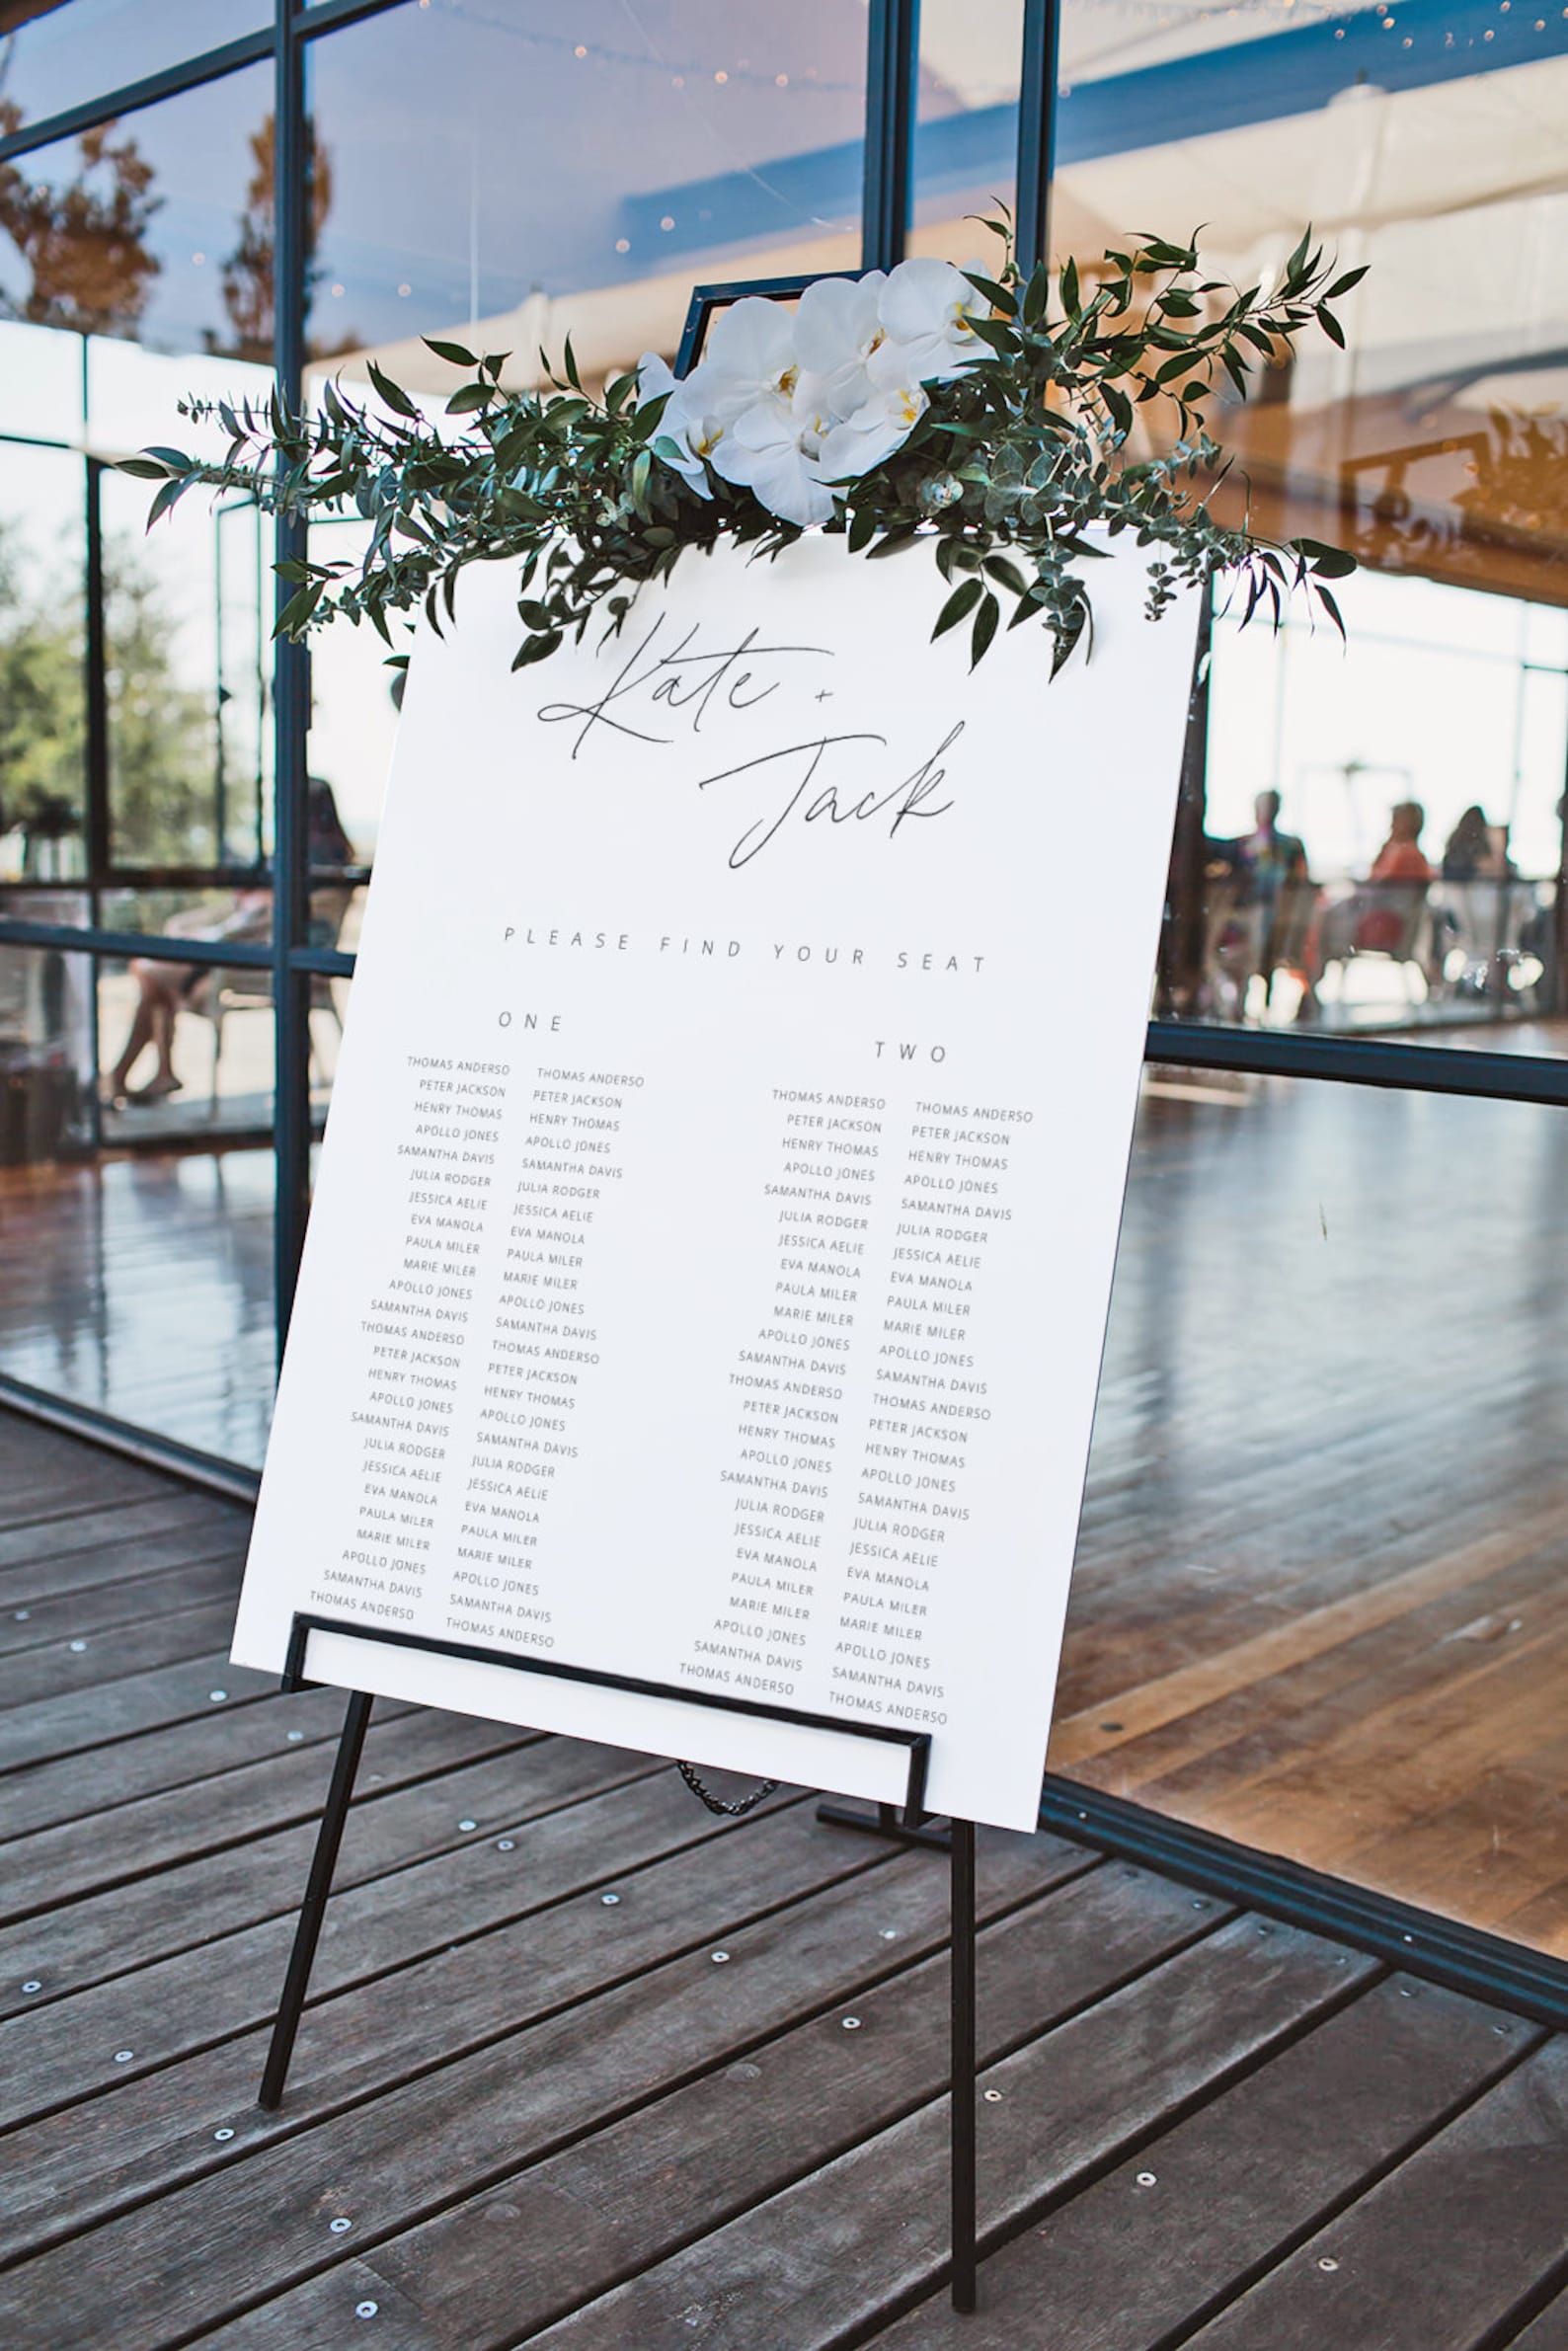 Kate +
Jack
PLEASE FIND YOUR SEAT
ONE
THOMAS ANDERSO
PETER JACKSON
HENRY THOMAS
APOLLO JONES
SAMANTHA DAVIS
JULIA RODGER
JESSICA AELIE
EVA MANOLA
PAULA MILER
MARIE MILER
APOLLO JONES
SAMANTHA DAVIS
THOMAS ANDERSO
PETER JACKSON
HENRY THOMAS
APOLLO JONES
SAMANTHA DAVIS
JULIA RODGER
JESSICA AELIE
EVA MANOLA
PAULA MILER
MARIE MILER
APOLLO JONES
SAMANTHA DAVIS
THOMAS ANDERSO
THOMAS ANDERSO
PETER JACKSON
HENRY THOMAS
APOLLO JONES
SAMANTHA DAVIS
JULIA RODGER
JESSICA AELIE
EVA MANOLA
PAULA MILER
MARIE MILER
APOLLO JONES
SAMANTHA DAVIS
THOMAS ANDERSO
PETER JACKSON
HENRY THOMAS
APOLLO JONES
SAMANTHA DAVIS
JULIA RODGER
JESSICA AELIE
EVA MANOLA
PAULA MILER
MARIE MILER
APOLLO JONES
SAMANTHA DAVIS
THOMAS ANDERSO
TWO
THOMAS ANDERSO
PETER JACKSON
HENRY THOMAS
APOLLO JONES
SAMANTHA DAVIS
JULIA RODGER
JESSICA AELIE
EVA MANOLA
PAULA MILER
MARIE MILER
APOLLO JONES
SAMANTHA DAVIS
THOMAS ANDERSO
PETER JACKSON
HENRY THOMAS
APOLLO JONES
SAMANTHA DAVIS
JULIA RODGER
JESSICA AELIE
EVA MANOLA
PAULA MILER
MARIE MILER
APOLLO JONES
SAMANTHA DAVIS
THOMAS ANDERSO
THOMAS ANDERSO
PETER JACKSON
HENRY THOMAS
APOLLO JONES
SAMANTHA DAVIS
JULIA RODGER
JESSICA AELIE
EVA MANOLA
PAULA MILER
MARIE MILER
APOLLO JONES
SAMANTHA DAVIS
THOMAS ANDERSO
PETER JACKSON
HENRY THOMAS
APOLLO JONES
SAMANTHA DAVIS
JULIA RODGER
JESSICA AELIE
EVA MANOLA
PAULA MILER
MARIE MILER
APOLLO JONES
SAMANTHA DAVIS
THOMAS ANDERSO